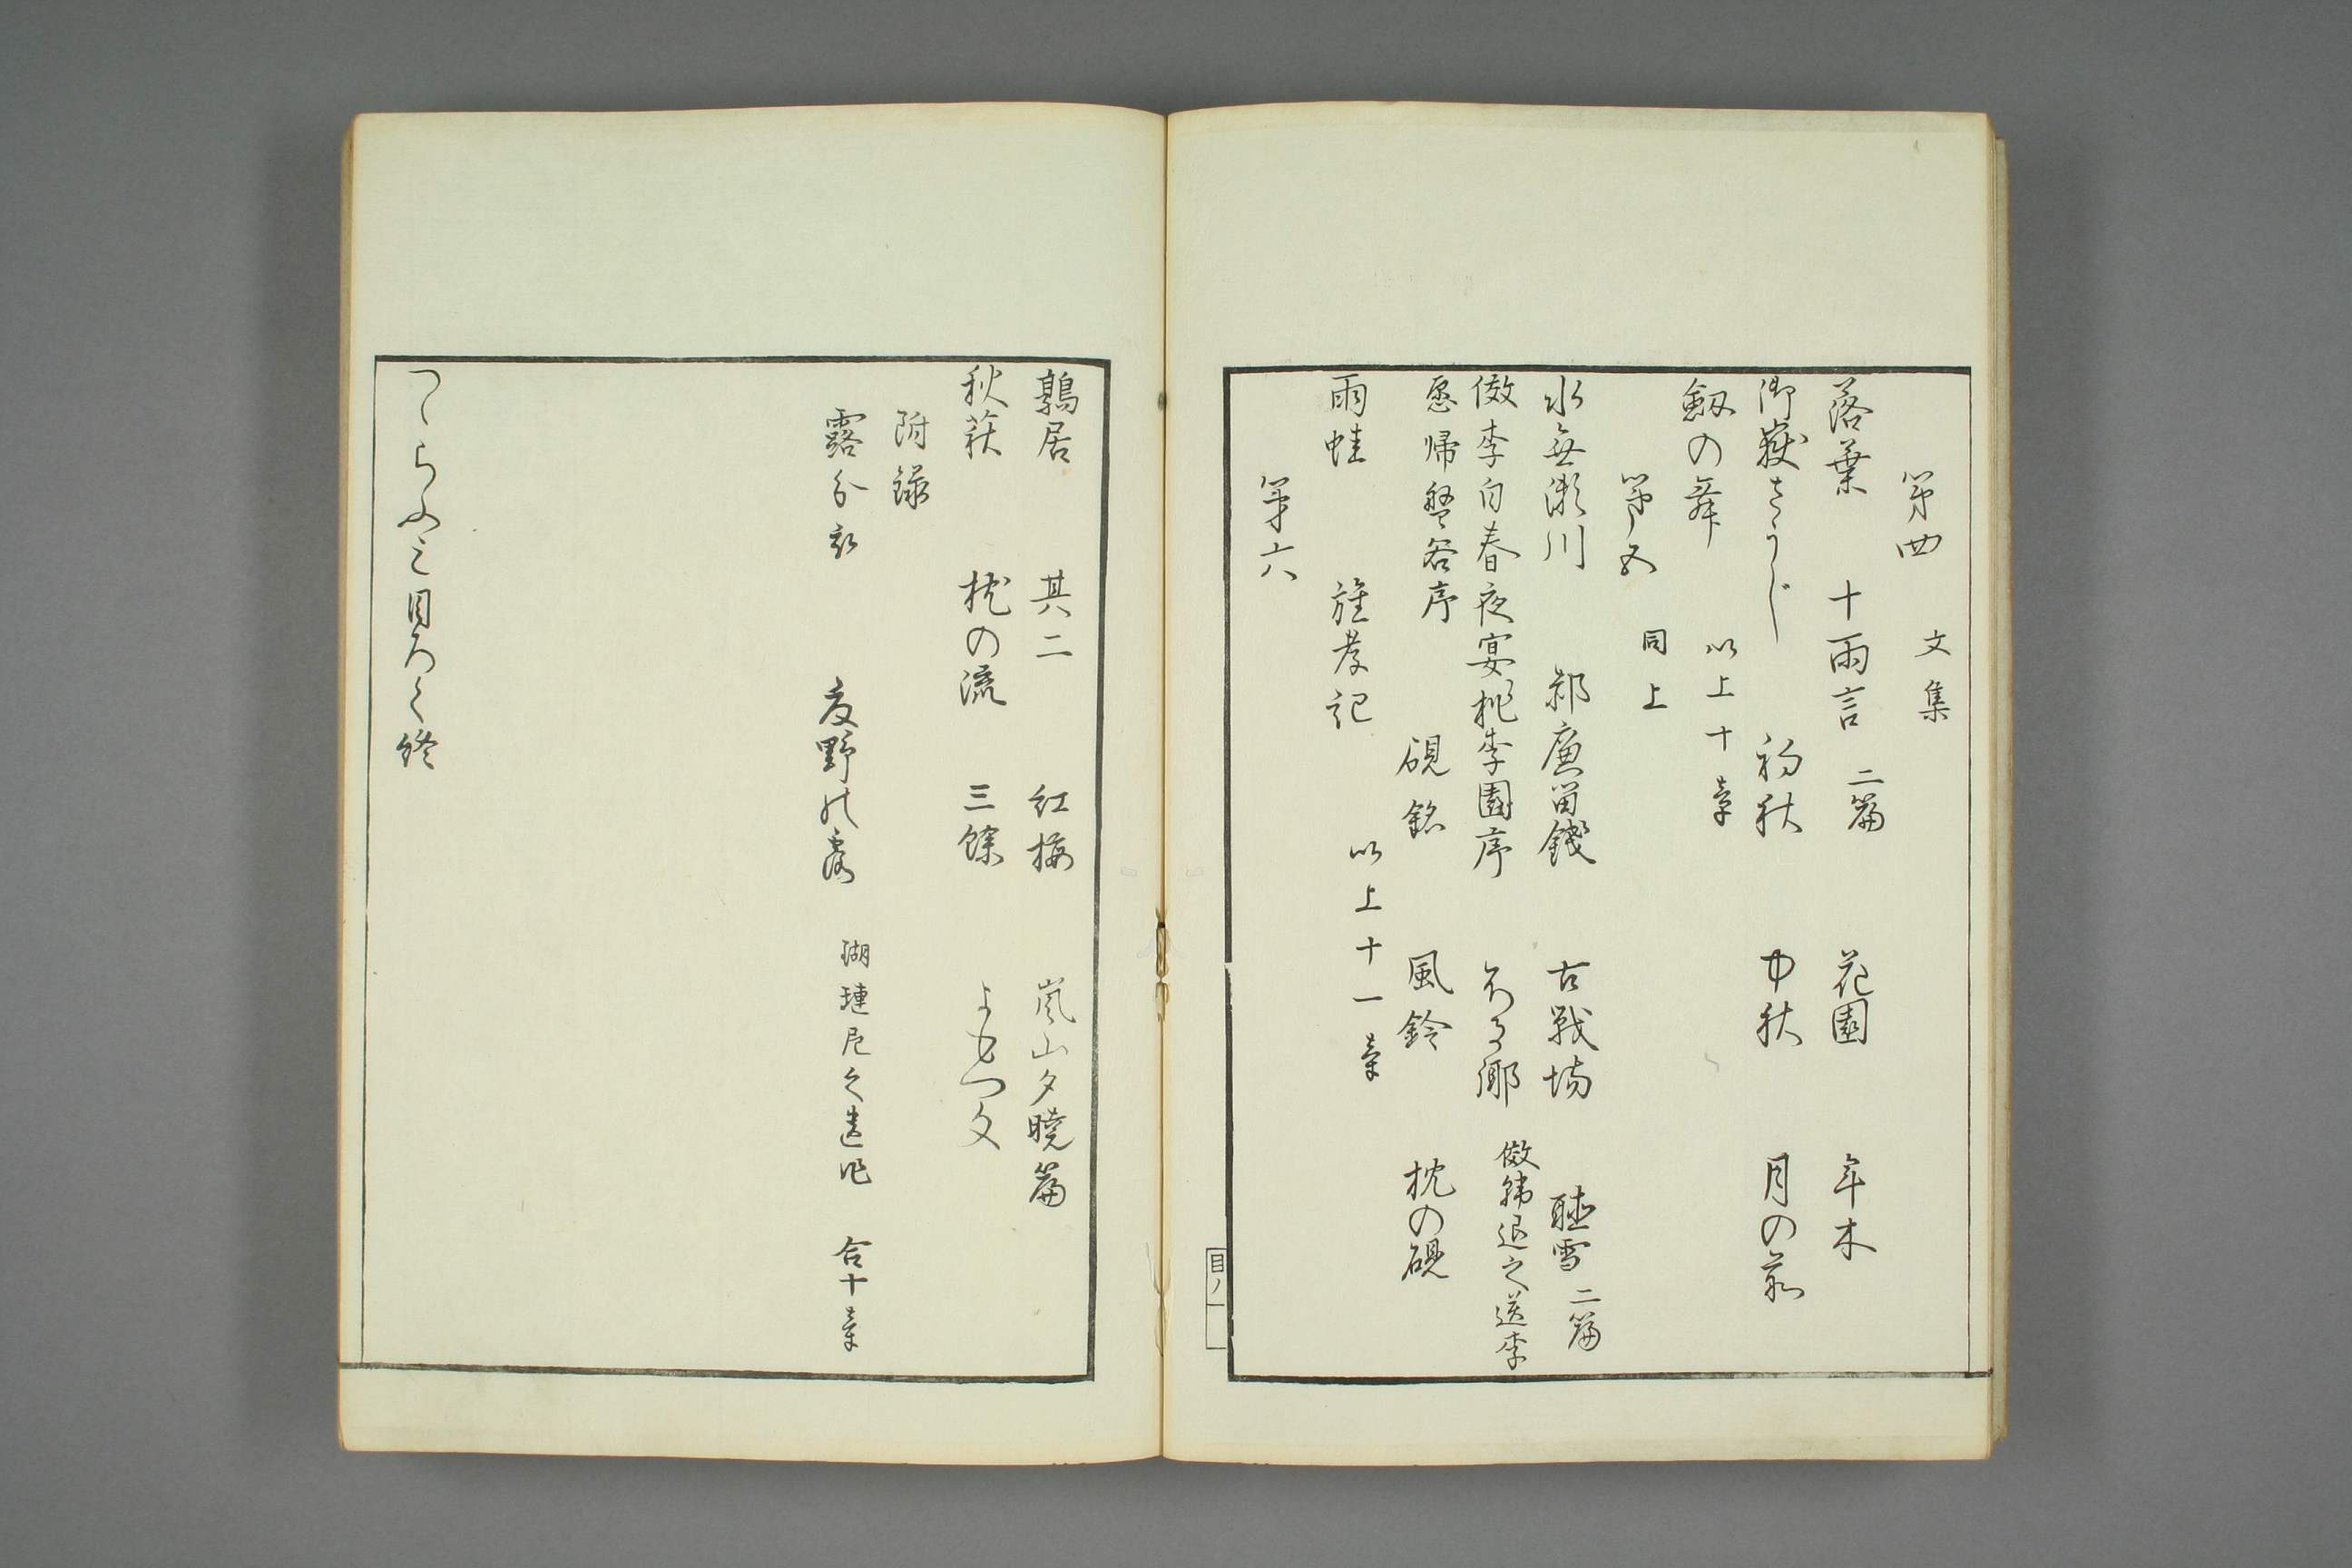 第四　文集
落葉　十雨言 二篇　花園　年木
御嶽さうじ　初秋　中秋　月の前
劔の舞　以上十章
第五　同上
水無瀬川　郝廉留錢　古戰場　聴雪 二篇
倣李白春夜宴桃李園序　　倣韓退之送李
愿帰盤谷序　硯銘　風鈴　枕の硯
雨蛙　旌孝記　以上十一章
第六
目ノ一
鶉居　其二　紅梅　嵐山夕曉篇
秋萩　枕の流　三餘　よもつ文
附録
露分衣　夏野の露　瑚璉尼之遺作　合十章
つゝらふみ目ろく終